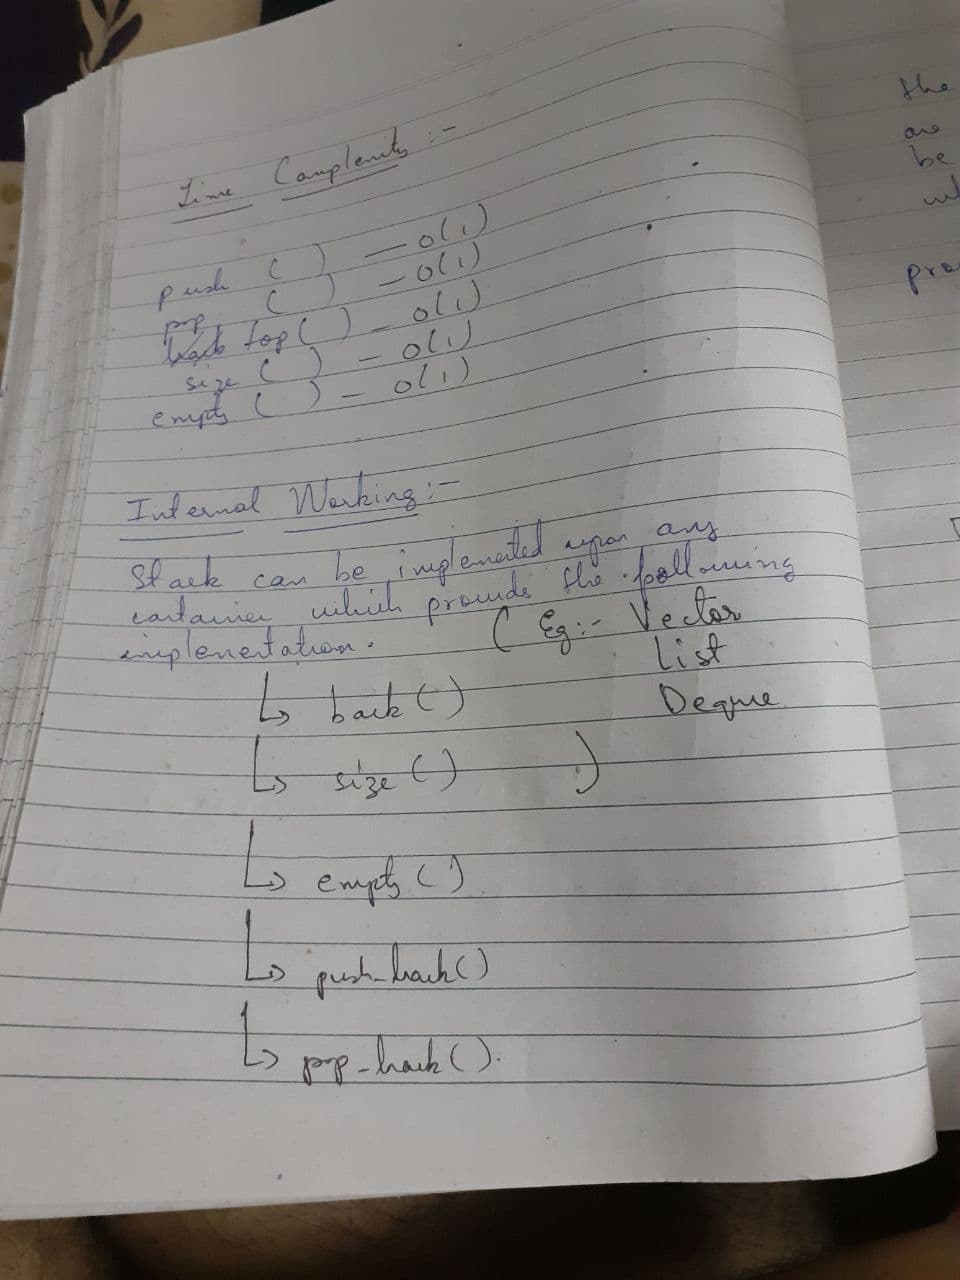 Time Complexity :-
push ( ) - o(1)
pop ( ) - o(1)
top ( ) - o(1)
size ( ) - o(1)
empty ( ) - o(1)
Internal Working :-
Stack can be implemented upon any
container which provids the following
implementation. ( Eg :- Vector
List
↳ back () Deque
↳ size () )
↳ empty ()
↳ push_back ()
↳ pop_back ().
the
are
be